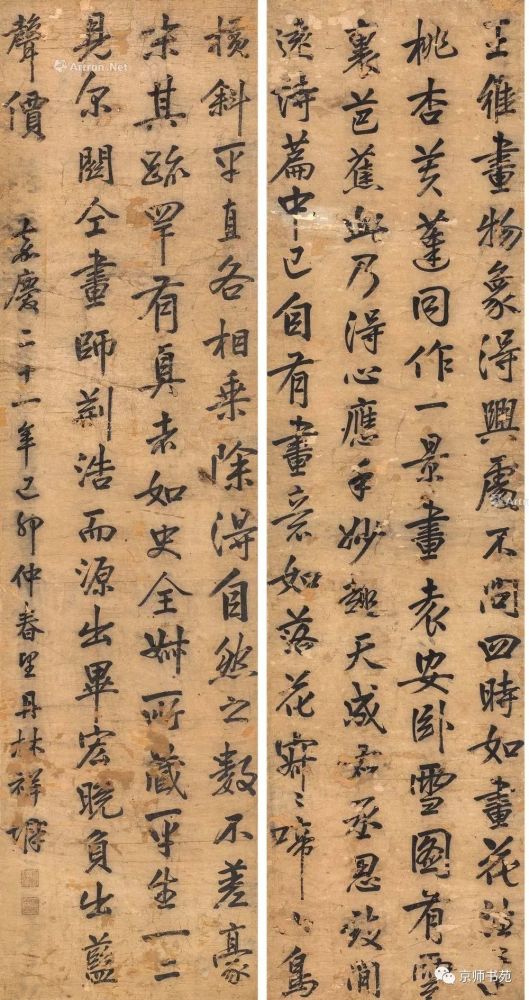 王維畫物象得興處不問四時如畫花往〻以
桃杏芙蓮同作一景畫袁安卧雪圖有雪
裏芭蕉此乃得心應手妙趣天成右丞思致閒
遠詩篇中已自有畫意如落花寂〻啼山鳥
橫斜平直各相乗除得自然之數不差豪
末其跡罕有真者如史全叔所藏平生一二
見尔關仝畫師荊浩而源出畢宏晚負出藍
聲價
嘉慶二十一年己卯仲春望丹林祥
Artron.Net
京师书苑